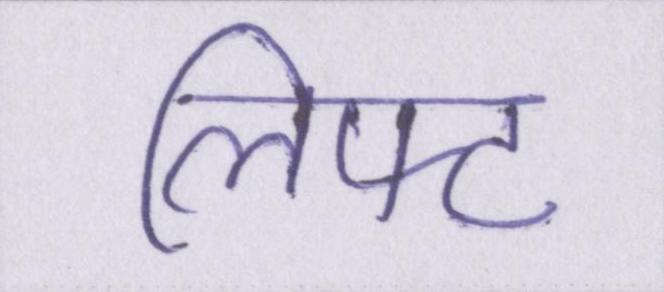 लिफ्ट